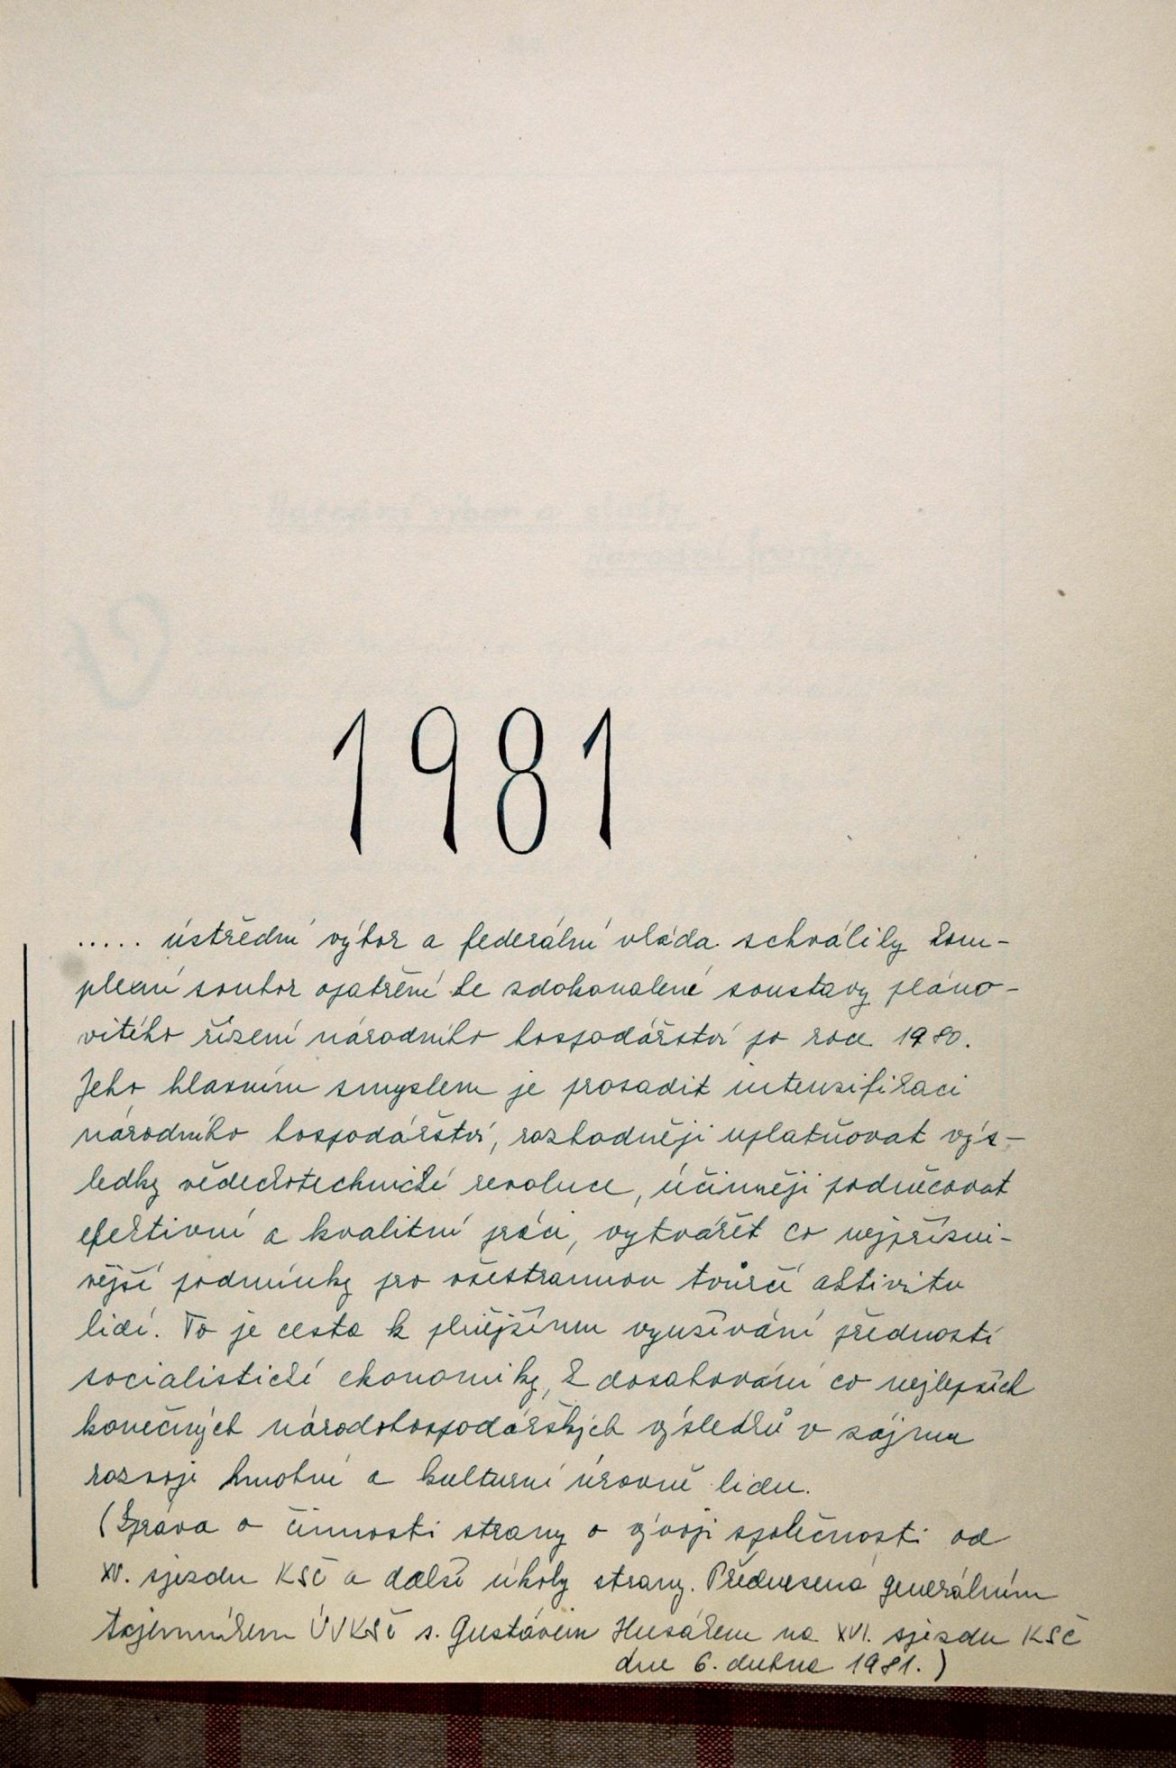 1981
..... ústřední výbor a federální vláda schválily kom-
plexní soubor opatření ke zdokonalené soustavy pláno-
vitého řízení národního hospodářství po roce 1980.
Jeho hlavním smyslem je prosadit intensifikaci
národního hospodářství, rozhodněji uplatňovat výs-
ledky vědeckotechnické revoluce, účinněji podněcovat
efektivní a kvalitní práci, vytvářet co nejpřízni-
vější podmínky pro všestrannou tvůrčí aktivitu
lidí. To je cesta k plnějšímu využívání předností
socialistické ekonomiky, k dosahování co nejlepších
konečných národohospodářských výsledků v zájmu
rozvoje hmotné a kulturní úrovně lidu.
(Zpráva o činnosti strany o vývoji společnosti od
XV. sjezdu KSČ a další úkoly strany. Přednesená generálním
tajemníkem ÚVKSČ s. Gustávem Husákem na XVI. sjezdu KSČ
dne 6. dubna 1981.)